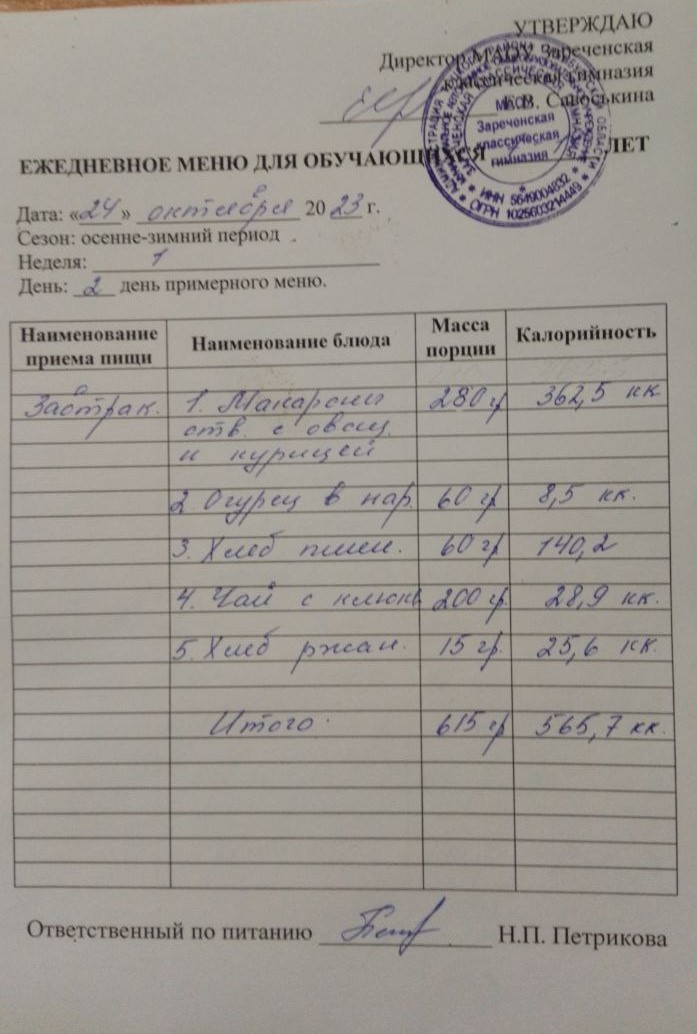 УТВЕРЖДАЮ
Директор МАОУ Зареченская
классическая гимназия
Е.В. Саюськина
ЕЖЕДНЕВНОЕ МЕНЮ ДЛЯ ОБУЧАЮЩИХСЯ ЛЕТ
МАОУ
Зареченская
классическая
гимназия
* ИНН 5649004832 *
ОГРН 1025603214449
Дата: «24» октября 2023 г.
Сезон: осенне-зимний период
Неделя: 1
День: 2 день примерного меню.
Наименование приема пищи Наименование блюда Масса порции Калорийность
Завтрак. 1. Макароны 280 гр 362,5 кк
отв. с овощ.
и курицей
2 Огурец в нар. 60 гр 8,5 кк.
3. Хлеб пшен. 60 гр 140,2
4. Чай с клюкв 200 гр. 28,9 кк.
5. Хлеб ржан. 15 гр. 25,6 кк.
Итого. 615 гр 565,7 кк.
Ответственный по питанию Н.П. Петрикова